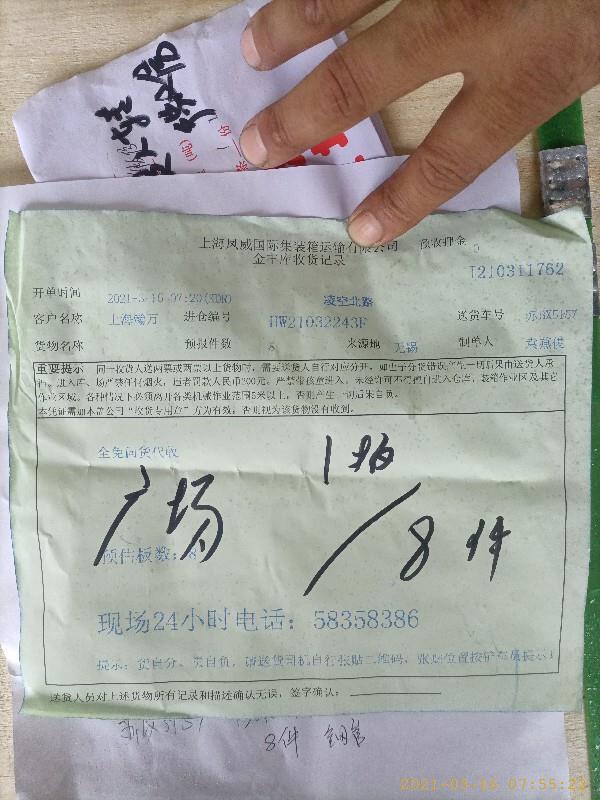 上海凤威国际集装箱运输有限公司 预收押金 0
金宇库收货记录
I210311762
开单时间 2021-3-16 07:20(KDR) 凌空北路
客户名称 上海 万 进仓编号 HW21032243F 送货车号
货物名称 预报件数 8 来源地 无锡 制单人
重要提示 同一收货人送两票或两票以上货物时,需要送货人自行对应分开,如由于分货错误产生一切后果由送货人承
担。进入库、场严禁任何烟火,违者罚款人民币200元。严禁带孩童进入,未经许可不得擅自进入仓库,装箱作业区及其它
作业区域。各种情况下必须离开各类机械作业范围5米以上,否则产生一切后果自负。
本凭证需加本部公司“收货专用章”方为有效,否则视为该货物没有收到。
全免同货代收
广场 1 / 8件
预估板数:8
现场24小时电话:58358386
提示:货自分、责自负,请送货司机自行张贴二维码,张贴位置按铲车员提示!
送货人员对上述货物所有记录和描述确认无误,签字确认:
8件
2021-03-16 07:55:22